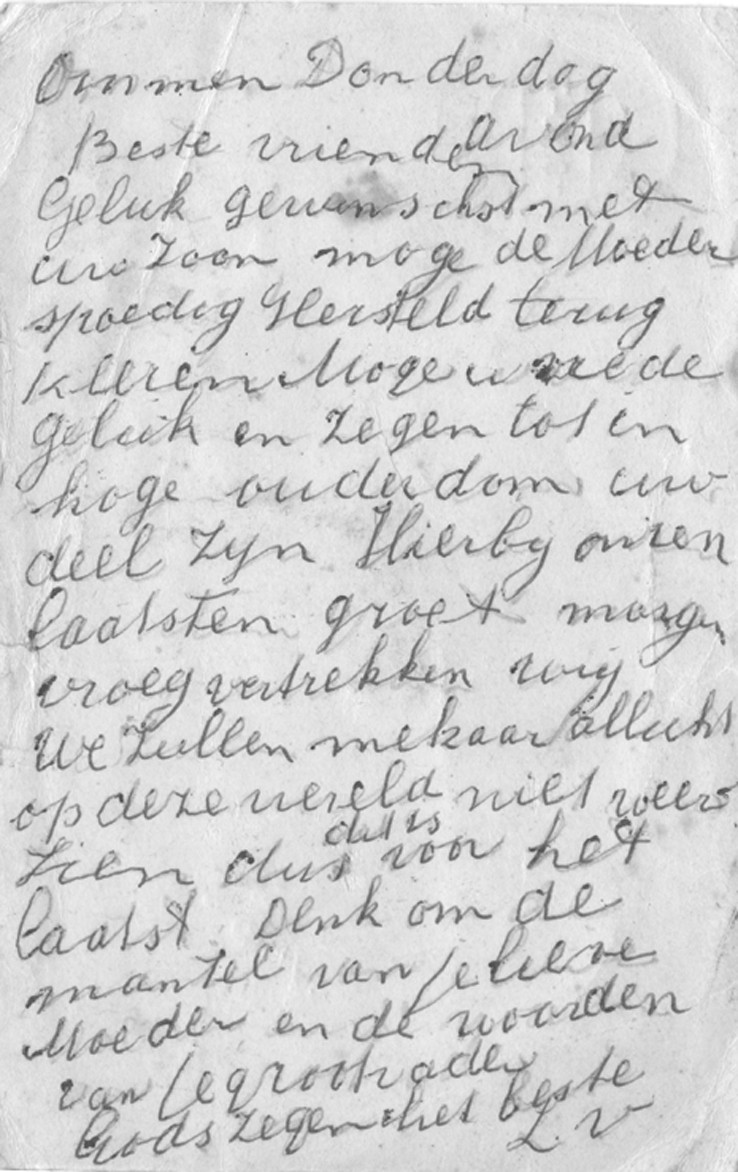 Ommen Donderdag
Avond
Beste vrienden
Geluk gewenscht met
uw Zoon moge de Moeder
spoedig Hersteld terug
keeren Moge u vrede
geluk en zegen tot in
hoge ouderdom uw
deel zyn Hierby onzen
laatsten groet morgen
vroeg vertrekken wij
We Zullen mekaar allicht
op deze wereld niet weer
zien dus dit is voor het
laatst Denk om de
mantel van je lieve
Moeder en de woorden
van je grootvader
Gods zegen het beste
L. V